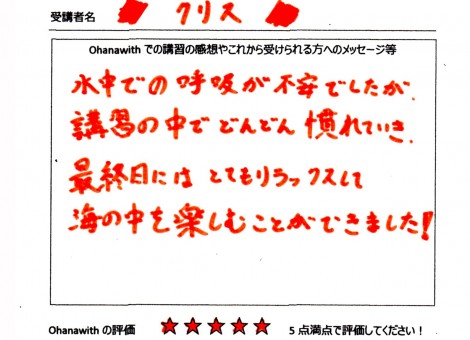 受講者名 クリス
Ohanawith での講習の感想やこれから受けられる方へのメッセージ等
水中での呼吸が不安でしたが、
講習の中でどんどん慣れていき、
最終日にはとてもリラックスして
海の中を楽しむことができました!
Ohanawith の評価 ★★★★★ 5 点満点で評価してください！